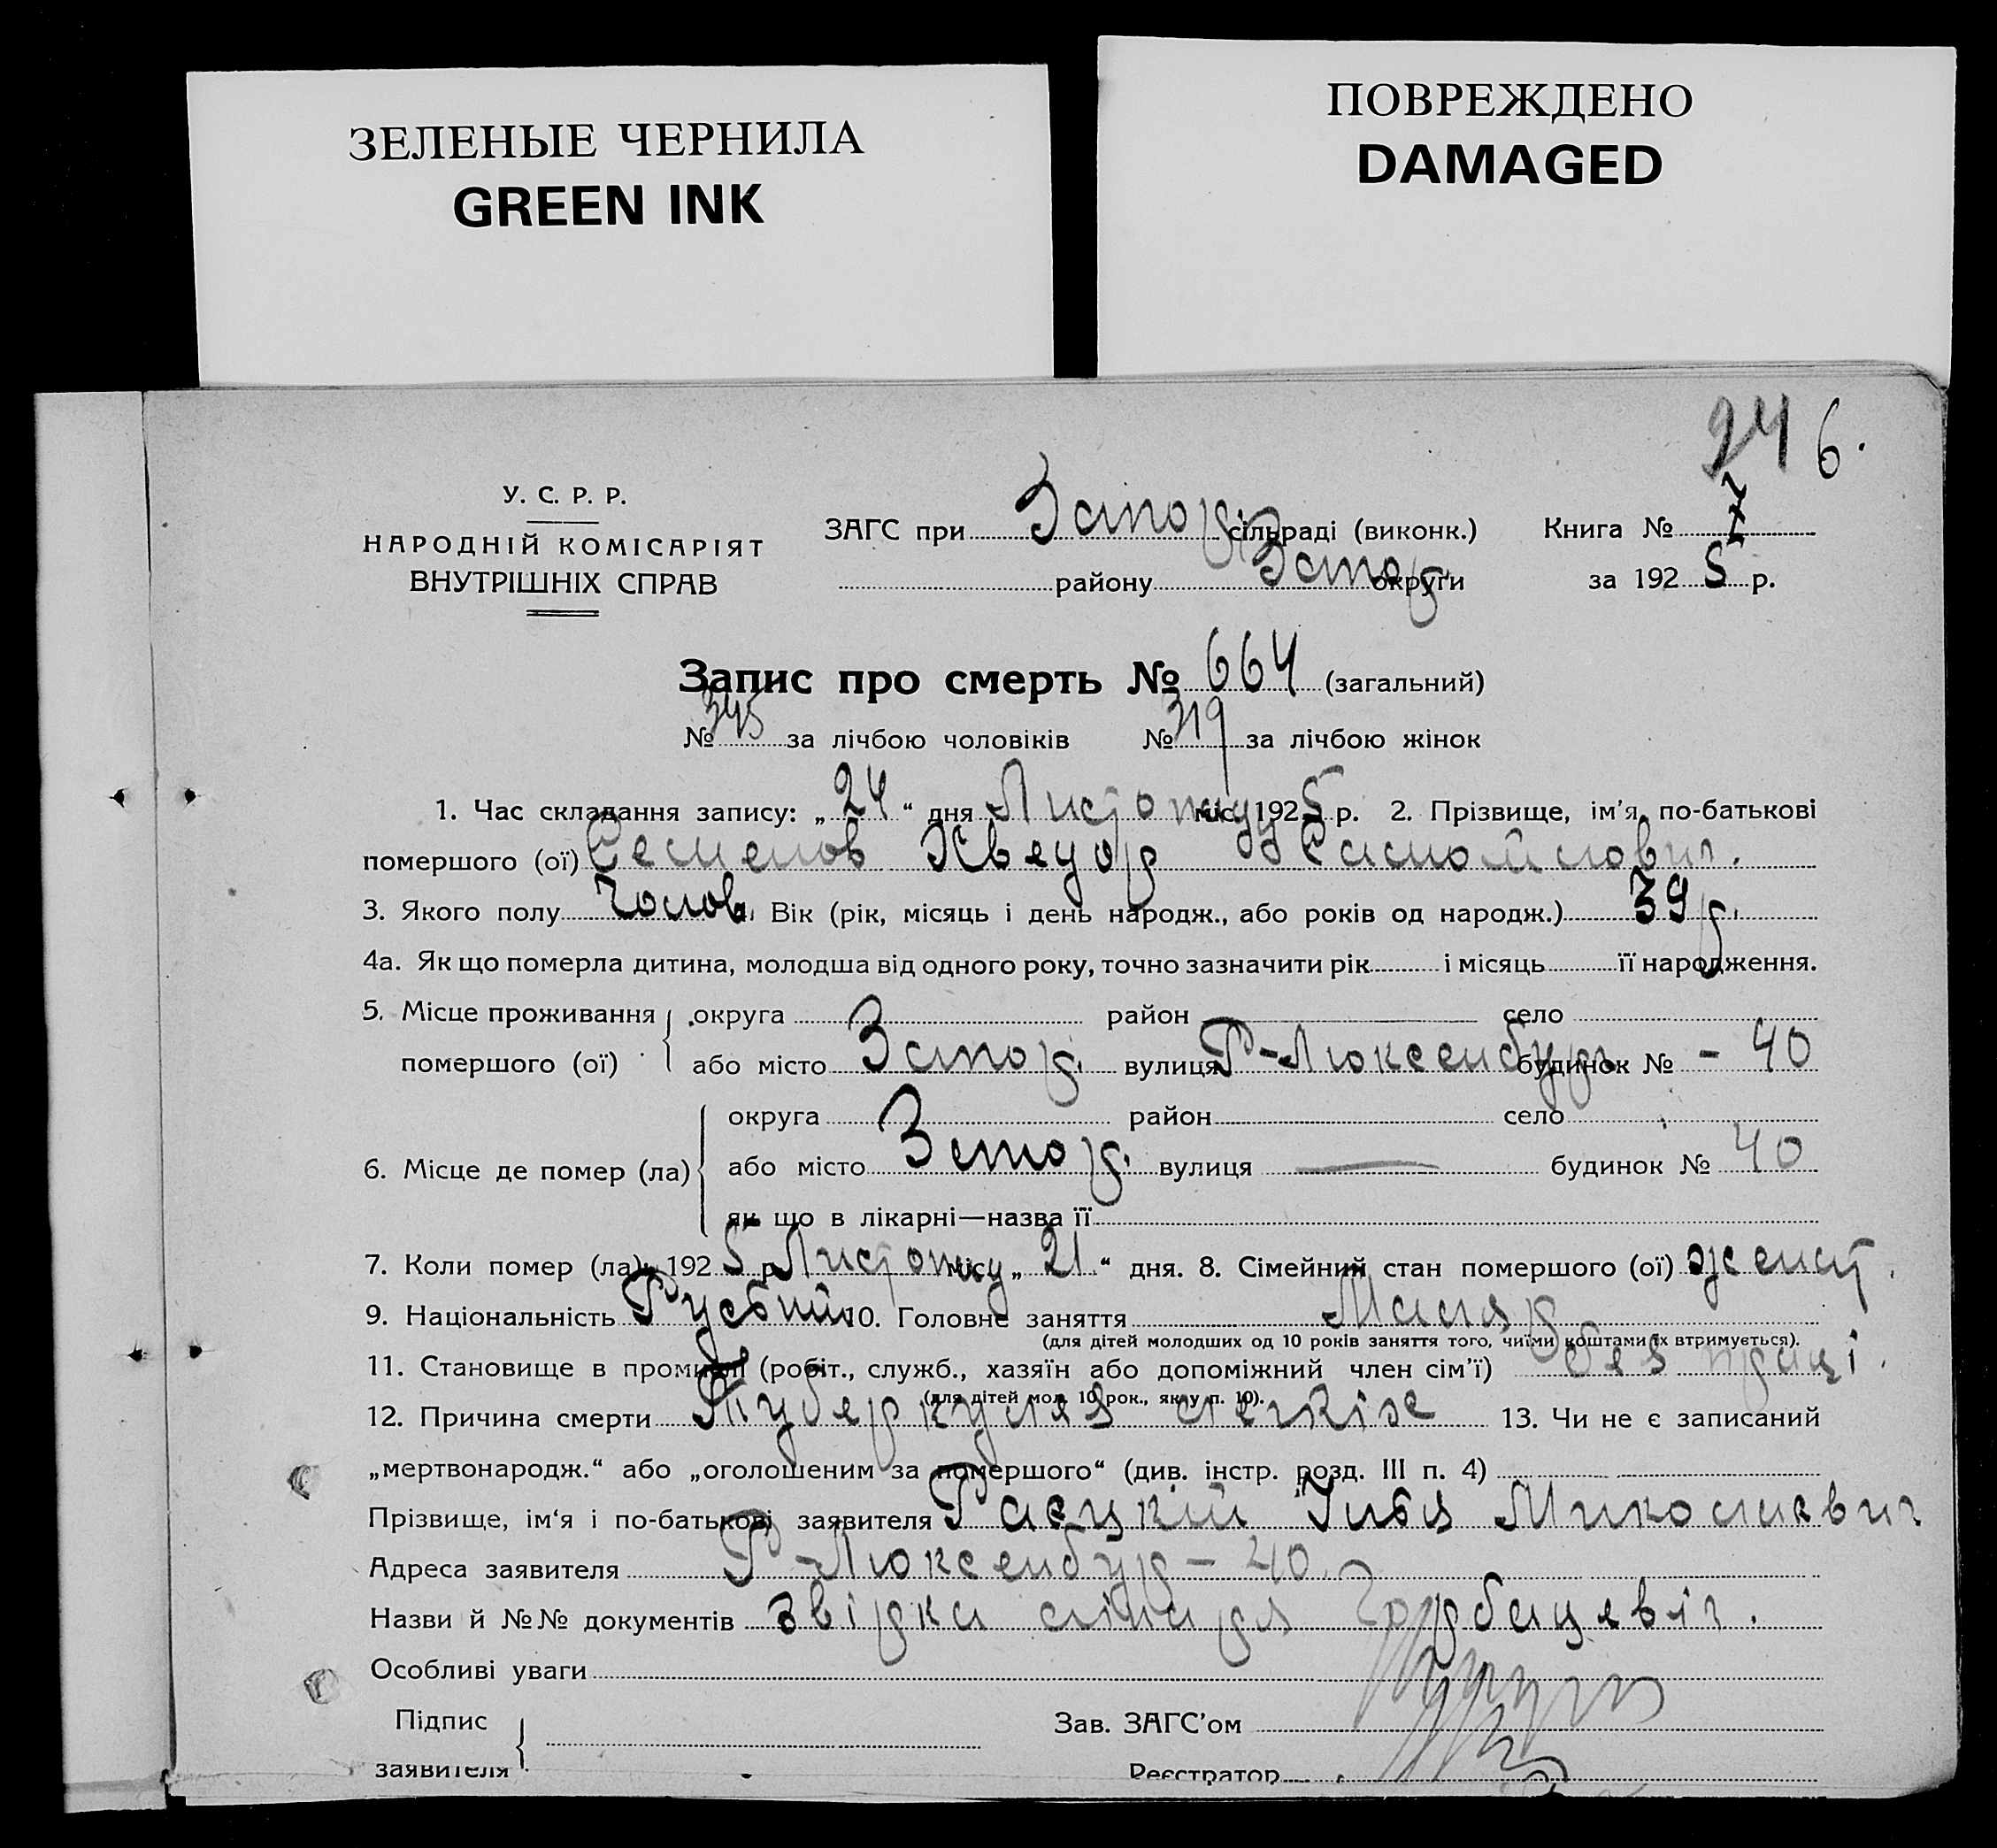 ЗЕЛЕНЫЕ ЧЕРНИЛА
GREEN INK
ПОВРЕЖДЕНО
DAMAGED
24 6.
У. С. Р. Р.
НАРОДНІЙ КОМІСАРІЯТ
ВНУТРІШНІХ СПРАВ
ЗАГС при Запор сільраді (виконк.) Книга №
району Запор округи за 1925 р.
Запис про смерть № 664 (загальний)
№ 345 за лічбою чоловіків № 319 за лічбою жінок
1. Час складання запису: „24“ дня Листопаду міс. 1925 р. 2. Прізвище, ім'я, по-батькові
помершого (ої) Семенов
3. Якого полу Чолов. Вік (рік, місяць і день народж., або років од народж.) 39 р.
4а. Як що померла дитина, молодша від одного року, точно зазначити рік і місяць її народження.
5. Місце проживання округа район село
помершого (ої) або місто Запор. вулиця Р-Люксембург будинок № - 40
округа район село
6. Місце де помер (ла) або місто Запор. вулиця — будинок № 40
як що в лікарні—назва її
7. Коли помер (ла) 1925 р. Листопаду міс. „21“ дня. 8. Сімейний стан помершого (ої) женат.
9. Національність Руський 10. Головне заняття Маляр
(для дітей молодших од 10 років заняття того, чиїми коштами їх втримується).
11. Становище в промислі (робіт., служб., хазяїн або допоміжний член сім'ї) без праці.
(для дітей мол. 10 рок., як у п. 10).
12. Причина смерти Туберкульоз легкіх 13. Чи не є записаний
„мертвонародж.“ або „оголошеним за помершого“ (див. інстр. розд. III п. 4)
Прізвище, ім'я і по-батькові заявителя Раєцкій Ілья Миколаевич
Адреса заявителя Р-Люксембург - 40.
Назви й №№ документів Звідка лікаря Горбацевіч.
Особливі уваги
Підпис
заявителя
Зав. ЗАГС'ом
Реєстратор